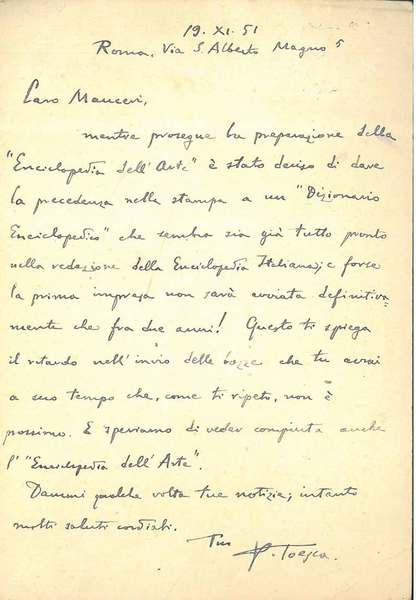 19. XI. 51
Roma, Via S. Alberto Magno 5
Caro Mauceri,
mentre prosegue la preparazione della
"Enciclopedia dell'Arte" è stato deciso di dare
la precedenza nella stampa a un "Dizionario
Enciclopedico" che sembra sia già tutto pronto
nella redazione della Enciclopedia Italiana; e forse
la prima impresa non sarà avviata definitiva-
mente che fra due anni! Questo ti spiega
il ritardo nell'invio delle bozze che tu avrai
a suo tempo che, come ti ripeto, non è
prossimo. E speriamo di veder compiuta anche
l'"Enciclopedia dell'Arte".
Dammi qualche volta tue notizie; intanto
molti saluti cordiali.
Tuo
P. Toesca.